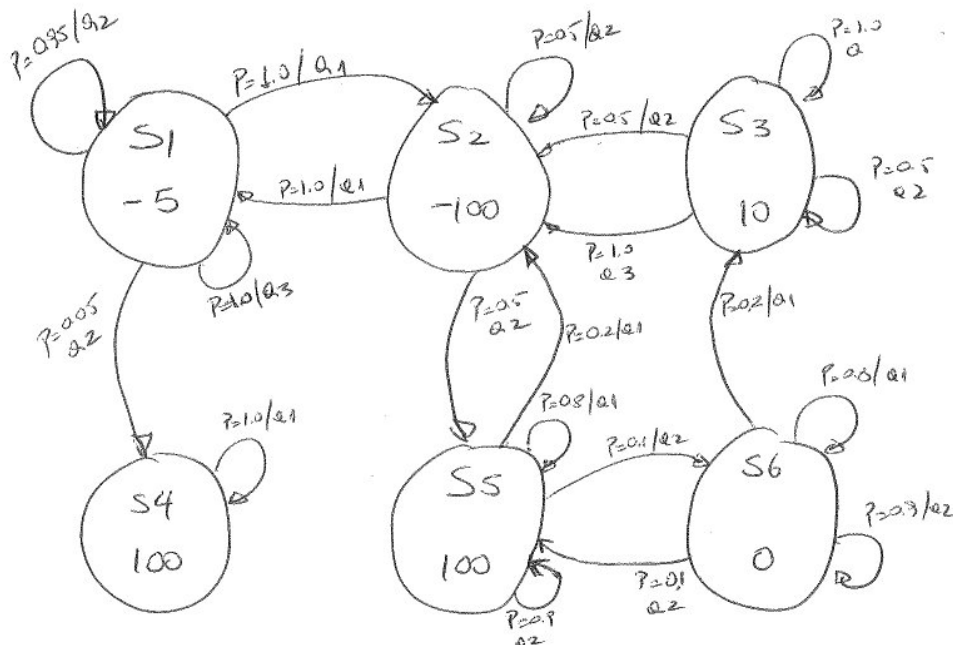 P=0.95/a2
P=1.0/a1
P=0.5/a2
P=1.0
a
S1
-5
S2
-100
P=0.5/a2
S3
10
P=1.0/a1
P=0.5
a2
P=1.0
a3
P=1.0/a3
P=0.05
a2
P=0.5
a2
P=0.2/a1
P=0.2/a1
P=1.0/a1
P=0.8/a1
P=0.1/a2
P=0.8/a1
S4
100
S5
100
S6
0
P=0.9/a2
P=0.1
a2
P=0.9
a2